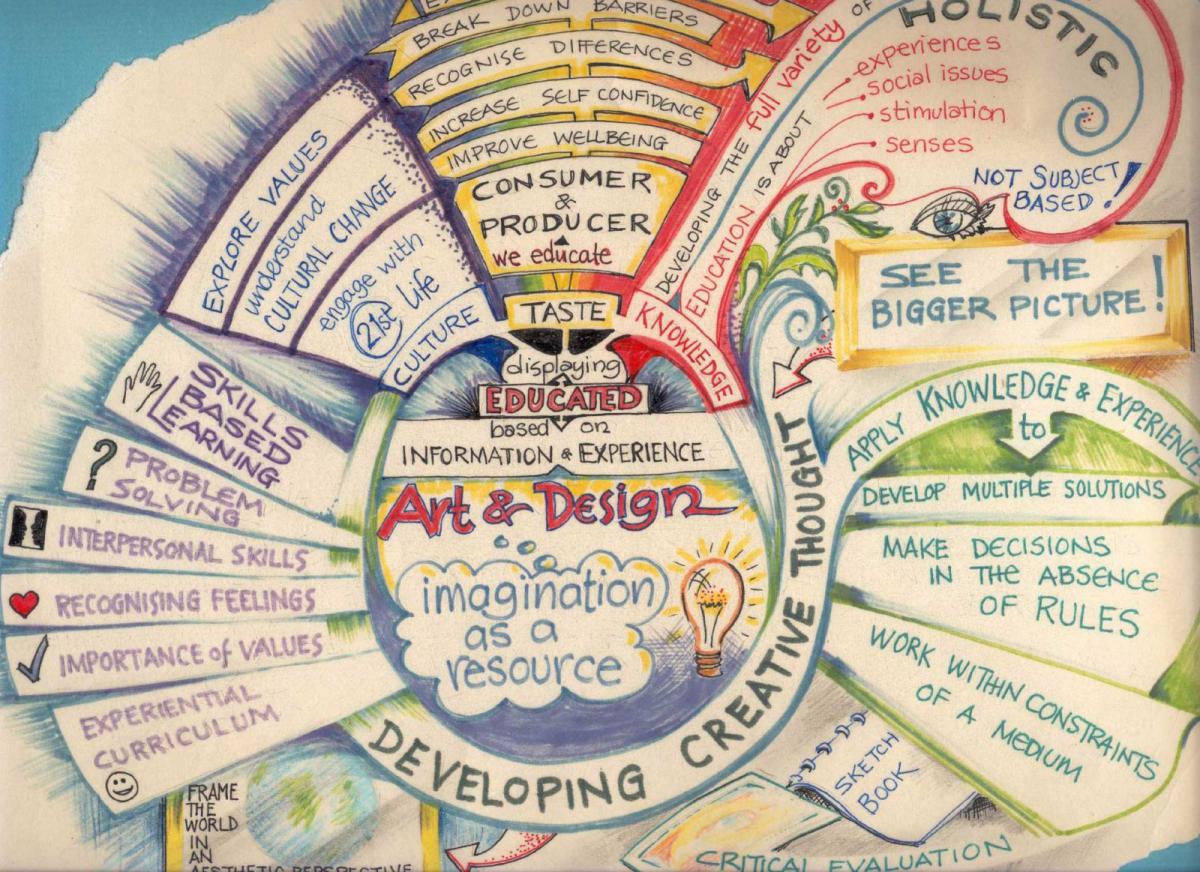 BREAK DOWN BARRIERS
RECOGNISE DIFFERENCES
INCREASE SELF CONFIDENCE
IMPROVE WELLBEING
CONSUMER
&
PRODUCER
we educate
TASTE
EXPLORE VALUES
understand
CULTURAL CHANGE
engage with
21st Life
CULTURE
KNOWLEDGE
DEVELOPING THE full variety OF
EDUCATION IS ABOUT
HOLISTIC
experiences
social issues
stimulation
senses
NOT SUBJECT
BASED!
SEE THE
BIGGER PICTURE!
displaying
EDUCATED
based on
INFORMATION & EXPERIENCE
Art & Design
imagination
as a
resource
SKILLS
BASED
LEARNING
?
PROBLEM
SOLVING
INTERPERSONAL SKILLS
RECOGNISING FEELINGS
IMPORTANCE of VALUES
EXPERIENTIAL
CURRICULUM
DEVELOPING CREATIVE THOUGHT
APPLY KNOWLEDGE & EXPERIENCE
to
DEVELOP MULTIPLE SOLUTIONS
MAKE DECISIONS
IN THE ABSENCE
OF RULES
WORK WITHIN CONSTRAINTS
OF A MEDIUM
SKETCH
BOOK
CRITICAL EVALUATION
FRAME
THE
WORLD
IN
AN
AESTHETIC PERSPECTIVE